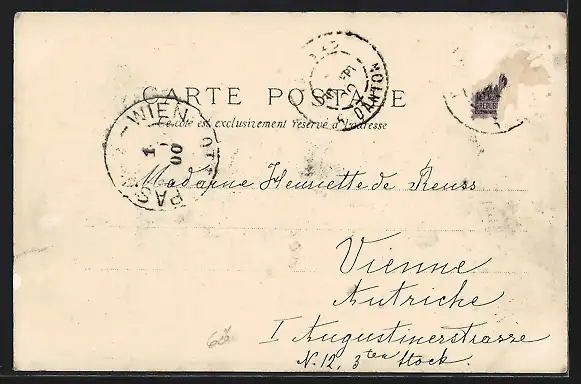 CARTE POSTALE
Ce côté est exclusivement réservé à l'adresse
WIEN
1
00
DANTON
Madame Henriette de Reuss
Vienne
Autriche
I Augustinerstrasse
N. 12, 3ten Stock.